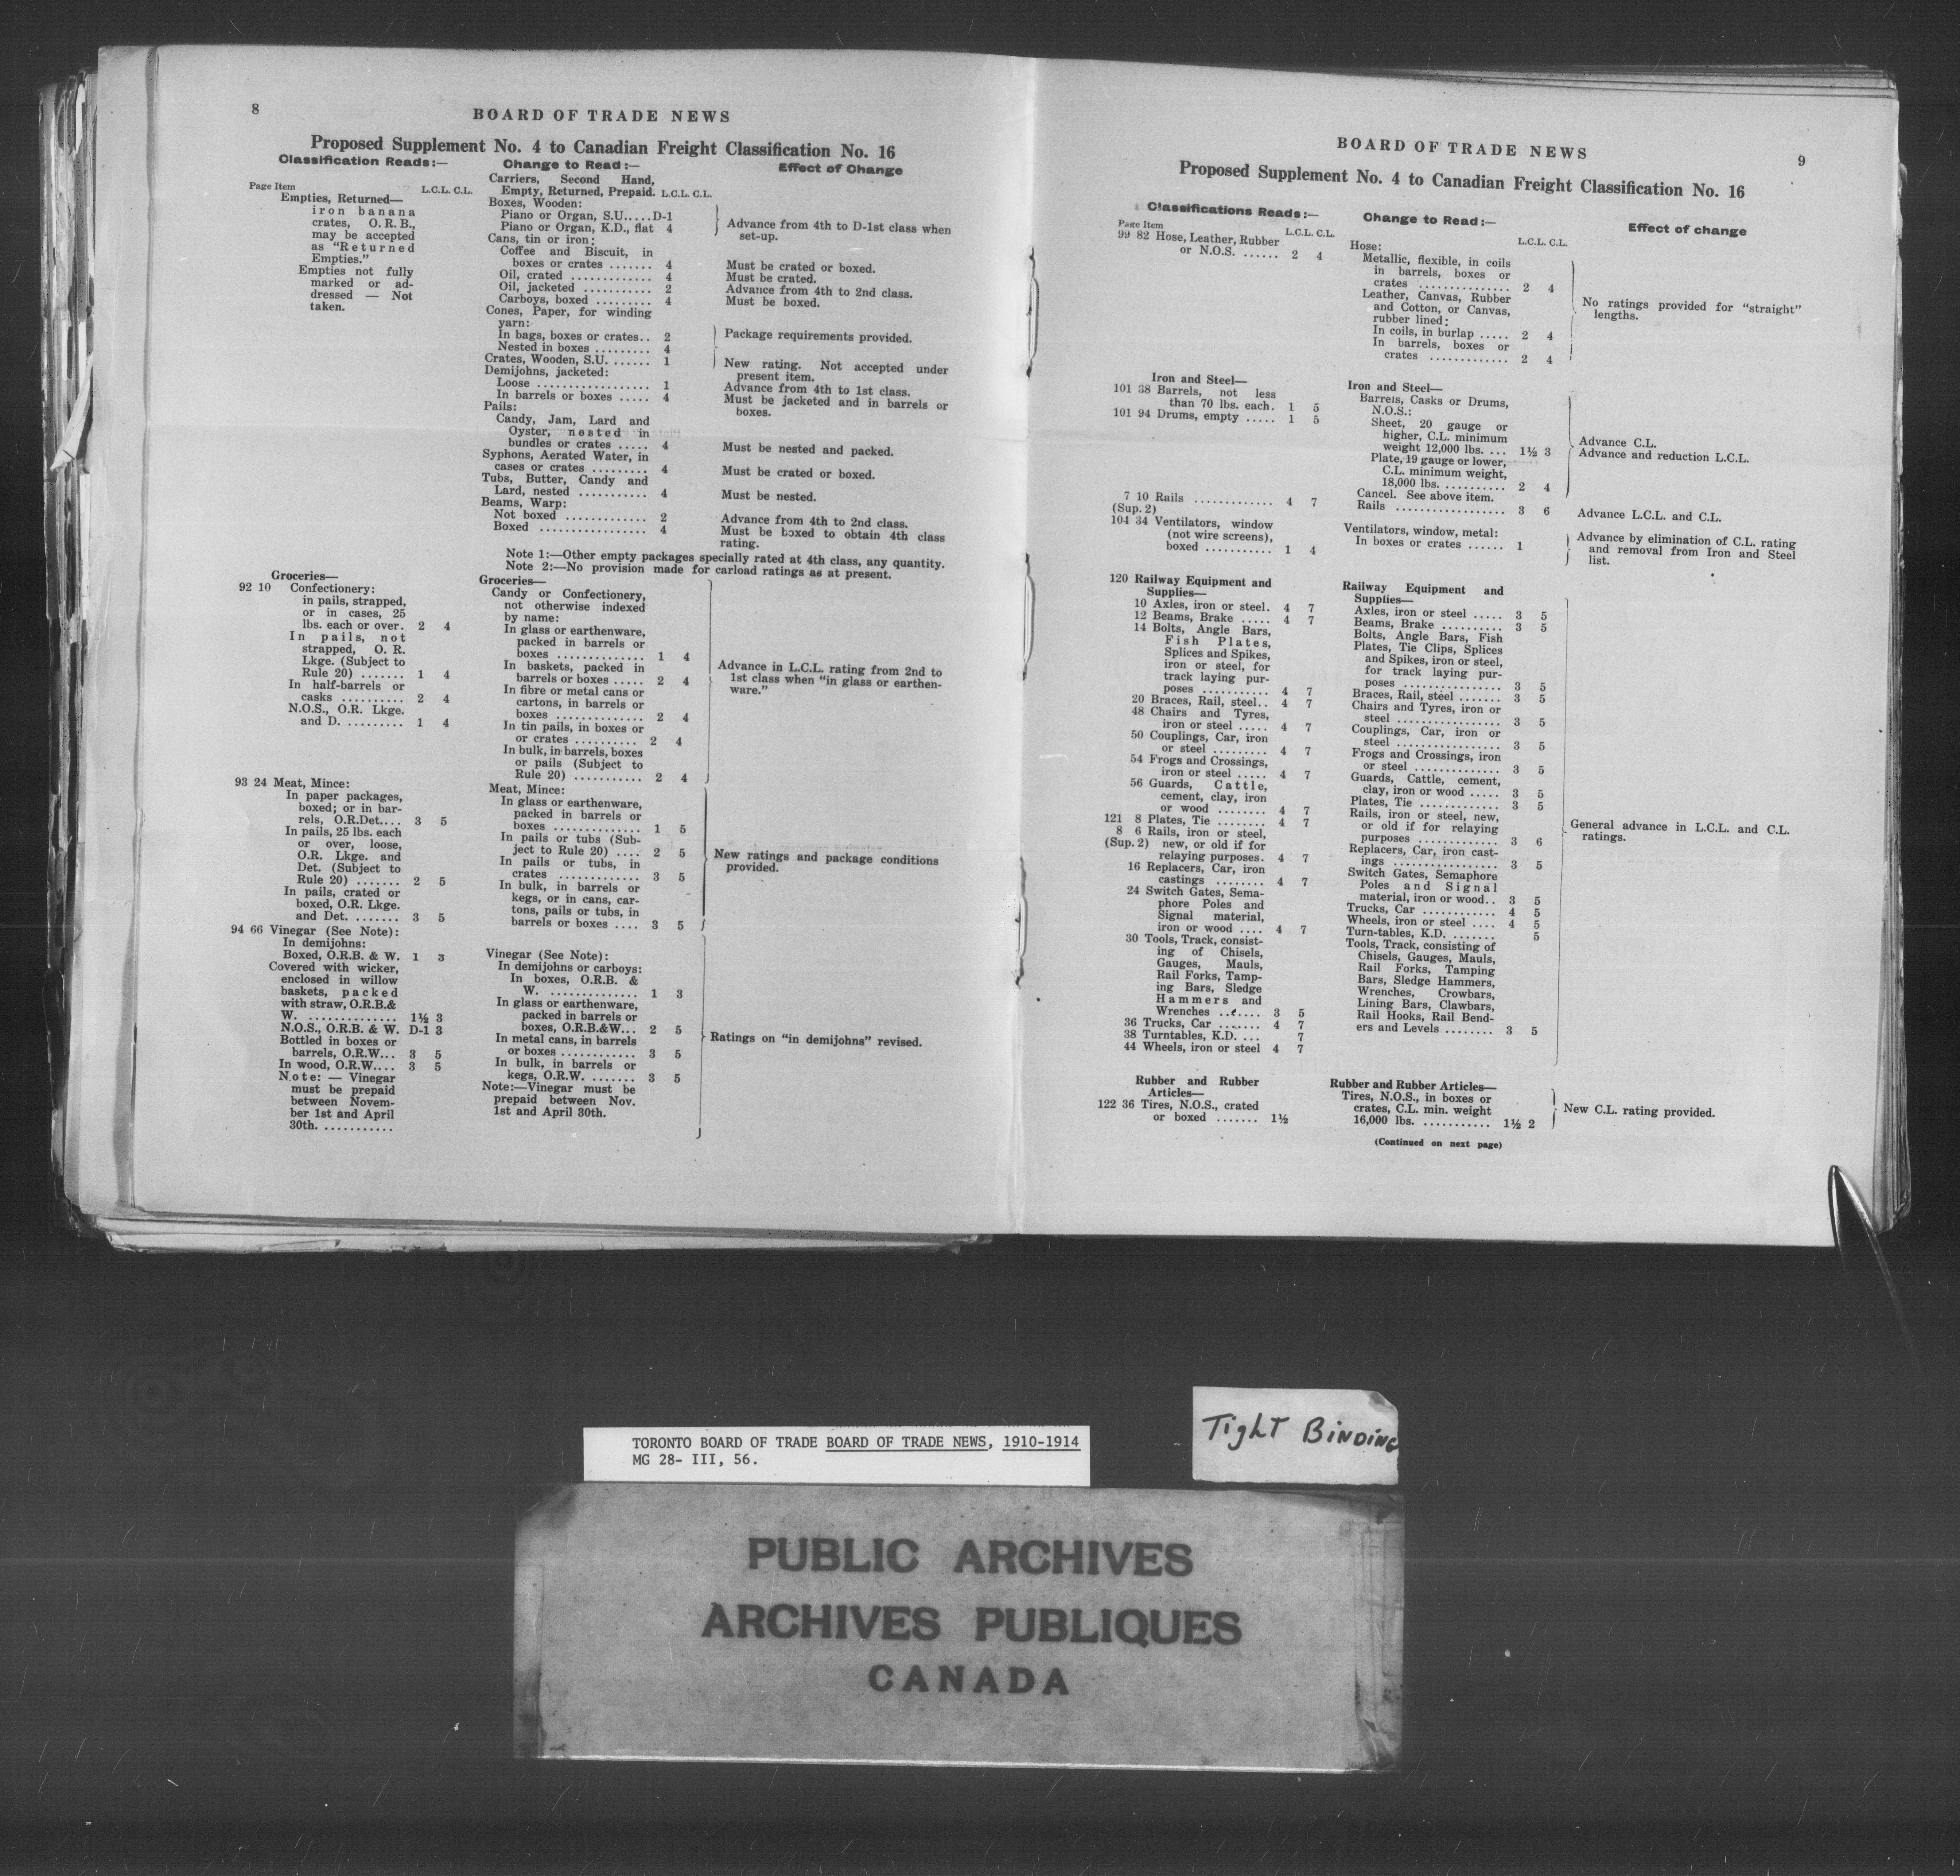 8
BOARD OF TRADE NEWS
Proposed Supplement No. 4 to Canadian Freight Classification No. 16
Classification Reads:—
Page Item L.C.L. C.L.
Empties, Returned—
iron banana
crates, O.R.B.,
may be accepted
as "Returned
Empties."
Empties not fully
marked or ad-
dressed — Not
taken.
Groceries—
92 10 Confectionery:
in pails, strapped,
or in cases, 25
lbs. each or over. 2 4
In pails, not
strapped, O. R.
Lkge. (Subject to
Rule 20) ....... 1 4
In half-barrels or
casks .......... 2 4
N.O.S., O.R. Lkge.
and D. ......... 1 4
93 24 Meat, Mince:
In paper packages,
boxed; or in bar-
rels, O.R.Det.... 3 5
In pails, 25 lbs. each
or over, loose,
O.R. Lkge. and
Det. (Subject to
Rule 20) ....... 2 5
In pails, crated or
boxed, O.R. Lkge.
and Det. ....... 3 5
94 66 Vinegar (See Note):
In demijohns:
Boxed, O.R.B. & W. 1 3
Covered with wicker,
enclosed in willow
baskets, packed
with straw, O.R.B.&
W. .............. 1½ 3
N.O.S., O.R.B. & W. D-1 3
Bottled in boxes or
barrels, O.R.W... 3 5
In wood, O.R.W.... 3 5
Note: — Vinegar
must be prepaid
between Novem-
ber 1st and April
30th. ...........
Change to Read:—
Carriers, Second Hand,
Empty, Returned, Prepaid. L.C.L. C.L.
Boxes, Wooden:
Piano or Organ, S.U.....D-1
Piano or Organ, K.D., flat 4
Cans, tin or iron:
Coffee and Biscuit, in
boxes or crates ....... 4
Oil, crated ............ 4
Oil, jacketed ........... 2
Carboys, boxed ......... 4
Cones, Paper, for winding
yarn:
In bags, boxes or crates.. 2
Nested in boxes ......... 4
Crates, Wooden, S.U. ...... 1
Demijohns, jacketed:
Loose ................. 1
In barrels or boxes ..... 4
Pails:
Candy, Jam, Lard and
Oyster, nested in
bundles or crates ..... 4
Syphons, Aerated Water, in
cases or crates ......... 4
Tubs, Butter, Candy and
Lard, nested ........... 4
Beams, Warp:
Not boxed ............. 2
Boxed ................. 4
Note 1:—Other empty packages specially rated at 4th class, any quantity.
Note 2:—No provision made for carload ratings as at present.
Groceries—
Candy or Confectionery,
not otherwise indexed
by name:
In glass or earthenware,
packed in barrels or
boxes .............. 1 4
In baskets, packed in
barrels or boxes ..... 2 4
In fibre or metal cans or
cartons, in barrels or
boxes .............. 2 4
In tin pails, in boxes or
or crates .......... 2 4
In bulk, in barrels, boxes
or pails (Subject to
Rule 20) ........... 2 4
Meat, Mince:
In glass or earthenware,
packed in barrels or
boxes .............. 1 5
In pails or tubs (Sub-
ject to Rule 20) .... 2 5
In pails or tubs, in
crates ............. 3 5
In bulk, in barrels or
kegs, or in cans, car-
tons, pails or tubs, in
barrels or boxes .... 3 5
Vinegar (See Note):
In demijohns or carboys:
In boxes, O.R.B. &
W. .............. 1 3
In glass or earthenware,
packed in barrels or
boxes, O.R.B.&W... 2 5
In metal cans, in barrels
or boxes ............ 3 5
In bulk, in barrels or
kegs, O.R.W. ....... 3 5
Note:—Vinegar must be
prepaid between Nov.
1st and April 30th.
Effect of Change
Advance from 4th to D-1st class when
set-up.
Must be crated or boxed.
Must be crated.
Advance from 4th to 2nd class.
Must be boxed.
Package requirements provided.
New rating. Not accepted under
present item.
Advance from 4th to 1st class.
Must be jacketed and in barrels or
boxes.
Must be nested and packed.
Must be crated or boxed.
Must be nested.
Advance from 4th to 2nd class.
Must be boxed to obtain 4th class
rating.
Advance in L.C.L. rating from 2nd to
1st class when "in glass or earthen-
ware."
New ratings and package conditions
provided.
Ratings on "in demijohns" revised.
BOARD OF TRADE NEWS
9
Proposed Supplement No. 4 to Canadian Freight Classification No. 16
Classifications Reads:—
Page Item L.C.L. C.L.
99 82 Hose, Leather, Rubber
or N.O.S. ...... 2 4
Iron and Steel—
101 38 Barrels, not less
than 70 lbs. each. 1 5
101 94 Drums, empty ..... 1 5
7 10 Rails ............. 4 7
(Sup. 2)
104 34 Ventilators, window
(not wire screens),
boxed ........... 1 4
120 Railway Equipment and
Supplies—
10 Axles, iron or steel. 4 7
12 Beams, Brake ..... 4 7
14 Bolts, Angle Bars,
Fish Plates,
Splices and Spikes,
iron or steel, for
track laying pur-
poses ........... 4 7
20 Braces, Rail, steel.. 4 7
48 Chairs and Tyres,
iron or steel ..... 4 7
50 Couplings, Car, iron
or steel ......... 4 7
54 Frogs and Crossings,
iron or steel ..... 4 7
56 Guards, Cattle,
cement, clay, iron
or wood ........ 4 7
121 8 Plates, Tie ........ 4 7
8 6 Rails, iron or steel,
(Sup. 2) new, or old if for
relaying purposes. 4 7
16 Replacers, Car, iron
castings ........ 4 7
24 Switch Gates, Sema-
phore Poles and
Signal material,
iron or wood .... 4 7
30 Tools, Track, consist-
ing of Chisels,
Gauges, Mauls,
Rail Forks, Tamp-
ing Bars, Sledge
Hammers and
Wrenches ....... 3 5
36 Trucks, Car ....... 4 7
38 Turntables, K.D. ... 7
44 Wheels, iron or steel 4 7
Rubber and Rubber
Articles—
122 36 Tires, N.O.S., crated
or boxed ....... 1½
Change to Read:—
L.C.L. C.L.
Hose:
Metallic, flexible, in coils
in barrels, boxes or
crates ............... 2 4
Leather, Canvas, Rubber
and Cotton, or Canvas,
rubber lined:
In coils, in burlap ..... 2 4
In barrels, boxes or
crates ............. 2 4
Iron and Steel—
Barrels, Casks or Drums,
N.O.S.:
Sheet, 20 gauge or
higher, C.L. minimum
weight 12,000 lbs. ... 1½ 3
Plate, 19 gauge or lower,
C.L. minimum weight,
18,000 lbs. .......... 2 4
Cancel. See above item.
Rails .................. 3 6
Ventilators, window, metal:
In boxes or crates ...... 1
Railway Equipment and
Supplies—
Axles, iron or steel ..... 3 5
Beams, Brake .......... 3 5
Bolts, Angle Bars, Fish
Plates, Tie Clips, Splices
and Spikes, iron or steel,
for track laying pur-
poses ................ 3 5
Braces, Rail, steel ....... 3 5
Chairs and Tyres, iron or
steel ................. 3 5
Couplings, Car, iron or
steel ................. 3 5
Frogs and Crossings, iron
or steel .............. 3 5
Guards, Cattle, cement,
clay, iron or wood ..... 3 5
Plates, Tie ............. 3 5
Rails, iron or steel, new,
or old if for relaying
purposes ............. 3 6
Replacers, Car, iron cast-
ings ................. 3 5
Switch Gates, Semaphore
Poles and Signal
material, iron or wood.. 3 5
Trucks, Car ............ 4 5
Wheels, iron or steel .... 4 5
Turn-tables, K.D. ....... 5
Tools, Track, consisting of
Chisels, Gauges, Mauls,
Rail Forks, Tamping
Bars, Sledge Hammers,
Wrenches, Crowbars,
Lining Bars, Clawbars,
Rail Hooks, Rail Bend-
ers and Levels ........ 3 5
Rubber and Rubber Articles—
Tires, N.O.S., in boxes or
crates, C.L. min. weight
16,000 lbs. ........... 1½ 2
(Continued on next page)
Effect of change
No ratings provided for "straight"
lengths.
Advance C.L.
Advance and reduction L.C.L.
Advance L.C.L. and C.L.
Advance by elimination of C.L. rating
and removal from Iron and Steel
list.
General advance in L.C.L. and C.L.
ratings.
New C.L. rating provided.
TORONTO BOARD OF TRADE BOARD OF TRADE NEWS, 1910-1914
MG 28- III, 56.
Tight Binding
PUBLIC ARCHIVES
ARCHIVES PUBLIQUES
CANADA